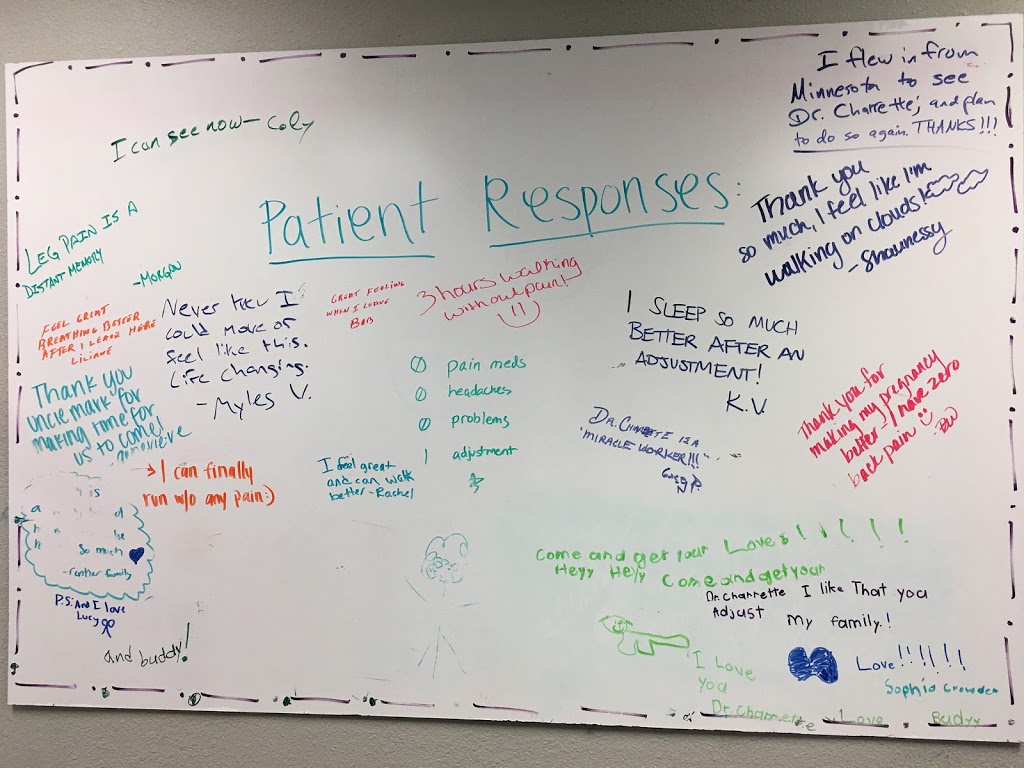 I flew in from
Minnesota to see
Dr. Charrette, and plan
to do so again. THANKS!!!
I can see now - Coly
Patient Responses:
Thank you
so much, I feel like I'm
walking on clouds!
- Shaunessy
LEG PAIN IS A
DISTANT MEMORY
- MORGAN
FEEL GREAT
BREATHING BETTER
AFTER I LEAVE HERE
LILIANE
Never knew I
could move or
feel like this.
Life changing.
- Myles V.
GREAT FEELING
WHEN I LEAVE
BOB
3 hours walking
without pain!
I SLEEP SO MUCH
BETTER AFTER AN
ADJUSTMENT!
K.V.
0 pain meds
0 headaches
0 problems
1 adjustment
Thank you
uncle mark for
making time for
us to come!
DR. CHARRETTE IS A
"MIRACLE WORKER!!!"
Thank you for
making my pregnancy
better, I have zero
back pain
→ I can finally
run w/o any pain :)
I feel great
and can walk
better - Rachel
is
so much
family
P.S: And I love
Lucy
and buddy!
Come and get your Loves! ! ! ! ! !
Heyy Heyy Come and get your
Dr. Charrette I like That you
Adjust my family.!
I Love
You
Dr. Charrette
Love!!!!!!
Sophia Crowder
Love Budyy